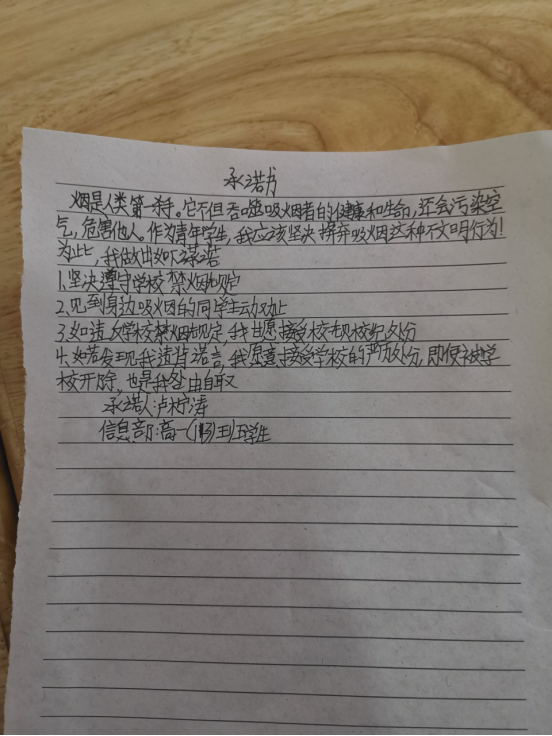 承诺书
烟是人类第一杀手。它不但吞噬吸烟者的健康和生命,还会污染空
气,危害他人。作为青年学生,我应该坚决摒弃吸烟这种不文明行为!
为此,我做出如下谋诺
1.坚决遵守学校禁烟规定
2.见到身边吸烟的同学主动劝止
3.如违反学校禁烟规定,我甘愿接受校规校纪处分
4.如若发现我违背诺言,我愿意接受学校的严厉处分,即使被学
校开除,也是我咎由自取
承诺人:卢柠涛
信息部:高一()班学生